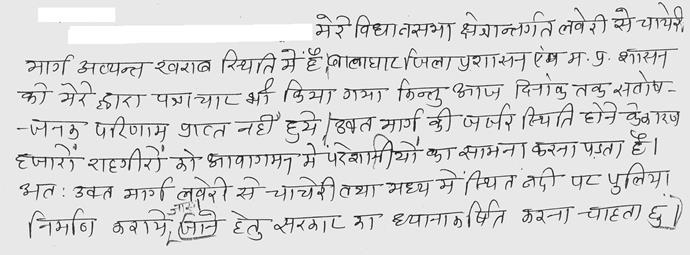 मेरे विधानसभा क्षेत्रान्तर्गत लवेरी से चाचेरी
मार्ग अत्यन्त खराब स्थिति में है। बालाघाट जिला प्रशासन एंव म. प्र. शासन
को मेरे द्वारा पत्राचार भी किया गया किन्तु आज दिनांक तक संतोष-
-जनक परिणाम प्राप्त नहीं हुये। उक्त मार्ग की जर्जर स्थिति होने के कारण
हजारों राहगीरों को आवागमन में परेशानीयों का सामना करना पड़ता है।
अत: उक्त मार्ग लवेरी से चाचेरी तथा मध्य में स्थित नदी पर पुलिया
निर्माण कराये जाने हेतु सरकार का ध्यानाकर्षित करना चाहता हुं।